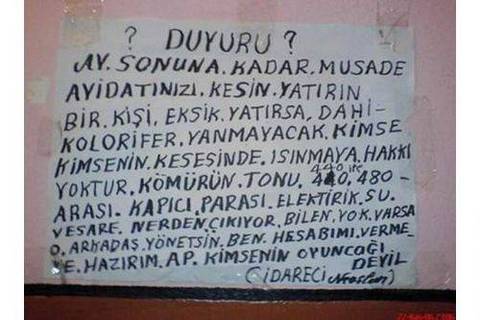 ? DUYURU ?
AY. SONUNA. KADAR. MUSADE
AYIDATINIZI. KESİN. YATIRIN
BİR. KİŞİ, EKSİK. YATIRSA, DAHİ-
KOLORİFER, YANMAYACAK. KİMSE
KİMSENİN. KESESİNDE. ISINMAYA. HAKKI
440 ile
YOKTUR. KÖMÜRÜN. TONU. 440, 480 -
ARASI. KAPICI, PARASI. ELEKTİRİK. SU.
VESARE. NERDEN ÇIKIYOR. BİLEN, YOK. VARSA
O. ARKADAŞ. YÖNETSİN. BEN. HESABIMI. VERME-
YE. HAZIRIM. AP. KİMSENİN OYUNCAĞI
DEYİL
(İDARECİ